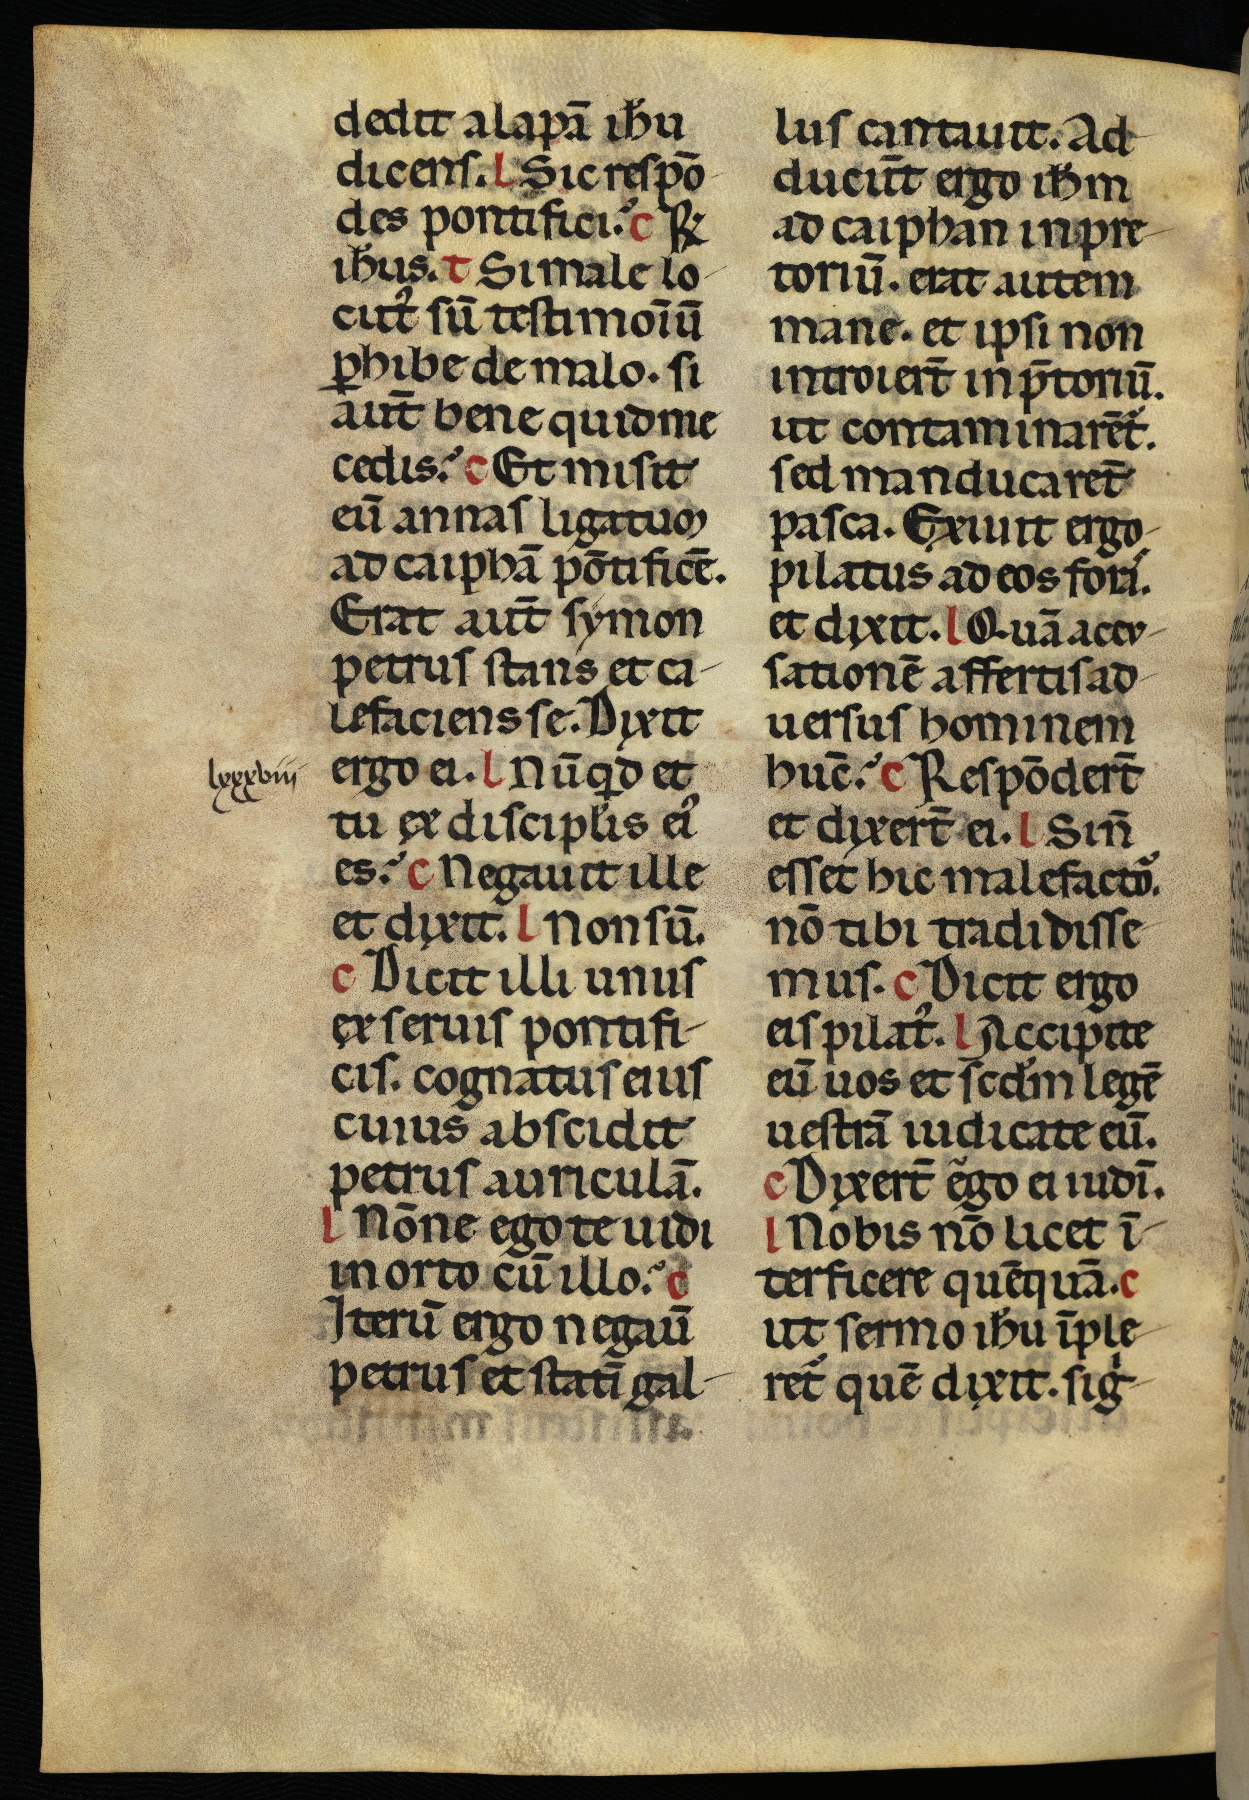 dedit alapā ihu
dicens. l Sic respō-
des pontifici. c R
ihus. t Si male lo-
cut' sū testimoīū
phibe de malo. si
aut̄ bene quid me
cedis. c Et misit
eū annas ligatum
ad caiphā pōtificē.
Erat aut̄ symon
petrus stans et ca-
lefaciens se. Dixit
lxxxviii
ergo ei. l Nūqd et
tu ex disciplis ei'
es. c Negauit ille
et dixit. l Non sū.
c Dicit illi unus
ex seruis pontifi-
cis. cognatus eius
cuius abscidit
petrus auriculā.
l Nōne ego te uidi
in orto cū illo. c
Iterū ergo negauī
petrus et statī gal-
lus cantauit. Ad-
ducūt ergo ihm
ad caiphan in pre-
toriū. erat autem
mane. et ipsi non
introiert̄ in p̄toriū.
ut contaminarēt'.
sed manducaret̄
pasca. Exiuit ergo
pilatus ad eos fori'.
et dixit. l Quā accu-
sationē affertis ad-
uersus hominem
hūc. c Respōdert̄
et dixert̄ ei. l Sin̄
esset hic malefacto'.
nō tibi tradidisse-
mus. c Dicit ergo
eis pilat'. l Accipite
eū uos et scdm legē
uestrā iudicate eū.
c Dixert̄ ego ei iudī.
l Nobis nō licet ī-
terficere quēquā. c
ut sermo ihu īple-
ret' quē dixit. sig-